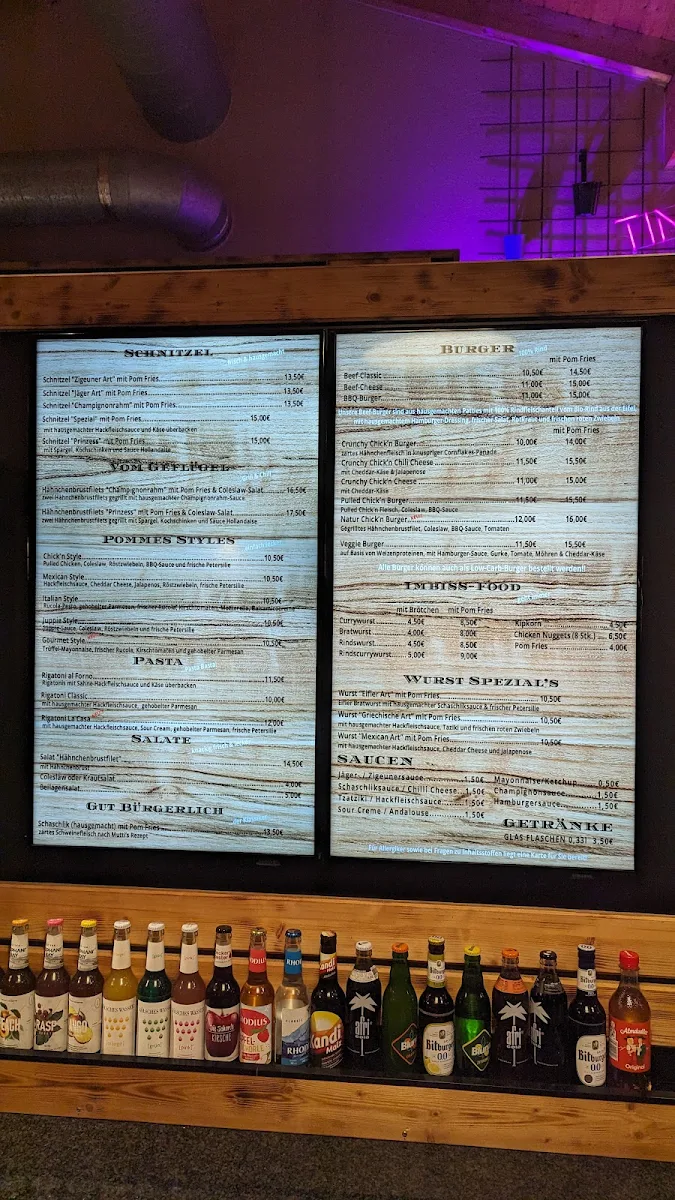 SCHNITZEL
Schnitzel "Zigeuner Art" mit Pom Fries 13,50€
Schnitzel "Jäger Art" mit Pom Fries 13,50€
Schnitzel "Champignonrahm" mit Pom Fries 13,50€
Schnitzel "Spezial" mit Pom Fries 15,00€
mit hausgemachter Hackfleischsauce und Käse überbacken
Schnitzel "Prinzess" mit Pom Fries 15,00€
mit Spargel, Kochschinken und Sauce Hollandaise
VOM GEFLÜGEL
Hähnchenbrustfilets "Champignonrahm" mit Pom Fries & Coleslaw-Salat 16,50€
zwei Hähnchenbrustfilets gegrillt mit hausgemachter Champignonrahm-Sauce
Hähnchenbrustfilets "Prinzess" mit Pom Fries & Coleslaw-Salat 17,50€
zwei Hähnchenbrustfilets gegrillt mit Spargel, Kochschinken und Sauce Hollandaise
POMMES STYLES
Chick'n Style 10,50€
Pulled Chicken, Coleslaw, Röstzwiebeln, BBQ-Sauce und frische Petersilie
Mexican Style 10,50€
Hackfleischsauce, Cheddar Cheese, Jalapenos, Röstzwiebeln, frische Petersilie
Italian Style 10,50€
Juppie Style 10,50€
Juppie-Sauce, Coleslaw, Röstzwiebeln und frische Petersilie
Gourmet Style 10,50€
Trüffel-Mayonnaise, frischer Rucola, Kirschtomaten und gehobelter Parmesan
PASTA
Rigatoni al Forno 11,50€
Rigatonis mit Sahne-Hackfleischsauce und Käse überbacken
Rigatoni Classic 10,00€
mit hausgemachter Hackfleischsauce, gehobelter Parmesan
Rigatoni La Casa 12,00€
mit hausgemachter Hackfleischsauce, Sour Cream, gehobelter Parmesan, frische Petersilie
SALATE
Salat "Hähnchenbrustfilet" 14,50€
mit Hähnchenbrust
Coleslaw oder Krautsalat 4,00€
Beilagensalat 5,00€
GUT BÜRGERLICH
Schaschlik (hausgemacht) mit Pom Fries 13,50€
zartes Schweinefleisch nach Mutti's Rezept
BURGER 100% Rind
mit Pom Fries
Beef Classic 10,50€ 14,50€
Beef Cheese 11,00€ 15,00€
BBQ-Burger 11,00€ 15,00€
Unsere Beef-Burger sind aus hausgemachten Patties mit 100% Rindfleischanteil vom Bio-Rind aus der Eifel
mit Pom Fries
Crunchy Chick'n Burger 10,00€ 14,00€
zartes Hähnchenfleisch in knuspriger Cornflakes-Panade
Crunchy Chick'n Chili Cheese 11,50€ 15,50€
mit Cheddar-Käse & Jalapenose
Crunchy Chick'n Cheese 11,00€ 15,00€
mit Cheddar-Käse
Pulled Chick'n Burger 11,50€ 15,50€
Pulled Chick'n Fleisch, Coleslaw, BBQ-Sauce
Natur Chick'n Burger 12,00€ 16,00€
Gegrilltes Hähnchenbrustfilet, Coleslaw, BBQ-Sauce, Tomaten
Veggie Burger 11,50€ 15,50€
auf Basis von Weizenproteinen, mit Hamburger-Sauce, Gurke, Tomate, Möhren & Cheddar-Käse
Alle Burger können auch als Low-Carb-Burger bestellt werden!!
IMBISS-FOOD
mit Brötchen mit Pom Fries
Currywurst 4,50€ 8,50€ Kipkorn 4,50€
Bratwurst 4,00€ 8,00€ Chicken Nuggets (8 Stk.) 6,50€
Rindswurst 4,50€ 8,50€ Pom Fries 4,00€
Rindscurrywurst 5,00€ 9,00€
WURST SPEZIAL'S
Wurst "Eifler Art" mit Pom Fries 10,50€
Eifler Bratwurst mit hausgemachter Schaschliksauce & frischer Petersilie
Wurst "Griechische Art" mit Pom Fries 10,50€
mit hausgemachter Hackfleischsauce, Taziki und frischen roten Zwiebeln
Wurst "Mexican Art" mit Pom Fries 10,50€
mit hausgemachter Hackfleischsauce, Cheddar Cheese und Jalapenose
SAUCEN
Jäger- / Zigeunersauce 1,50€ Mayonnaise/Ketchup 0,50€
Schaschliksauce / Chilli Cheese 1,50€ Champignonsauce 1,50€
Tzatziki / Hackfleischsauce 1,50€ Hamburgersauce 1,50€
Sour Creme / Andalouse 1,50€
GETRÄNKE
GLAS FLASCHEN 0,33l 3,50€
Für Allergiker sowie bei Fragen zu Inhaltsstoffen liegt eine Karte für Sie bereit!
RASP
KIRSCHE
RHODIUS
RHODIUS
Kandi
Malz
afri
Bitburger
0,0
afri
afri
Bitburger
0,0
Original